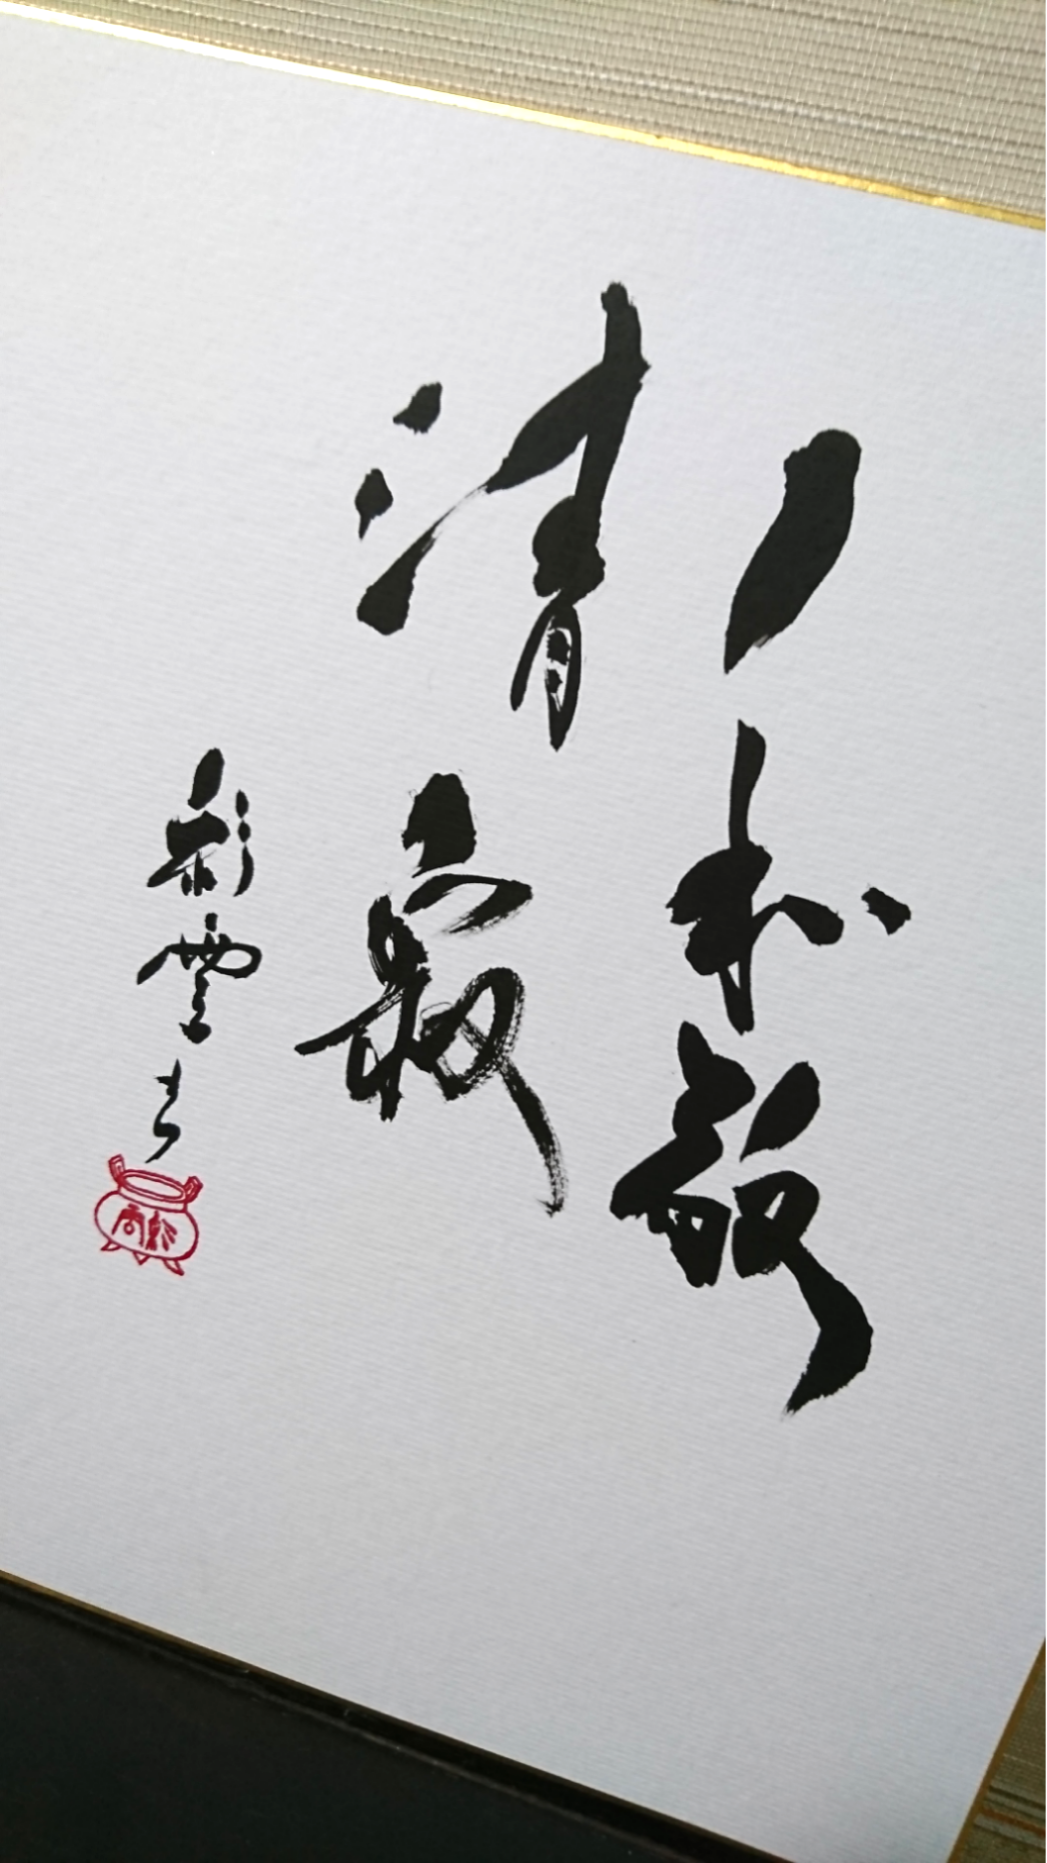 和敬
清寂
彩雲书